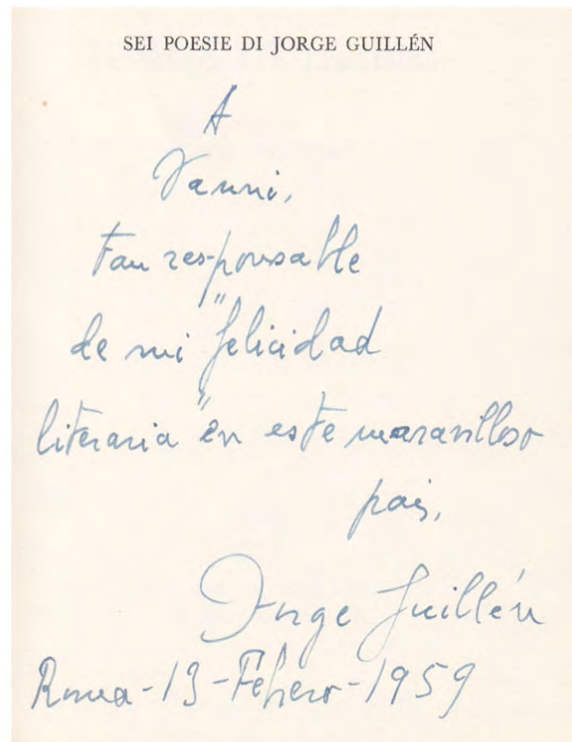 SEI POESIE DI JORGE GUILLÉN
A
Vanni,
tan responsable
de mi "felicidad
literaria" en este maravilloso
país,
Jorge Guillén
Roma-13-Febrero-1959